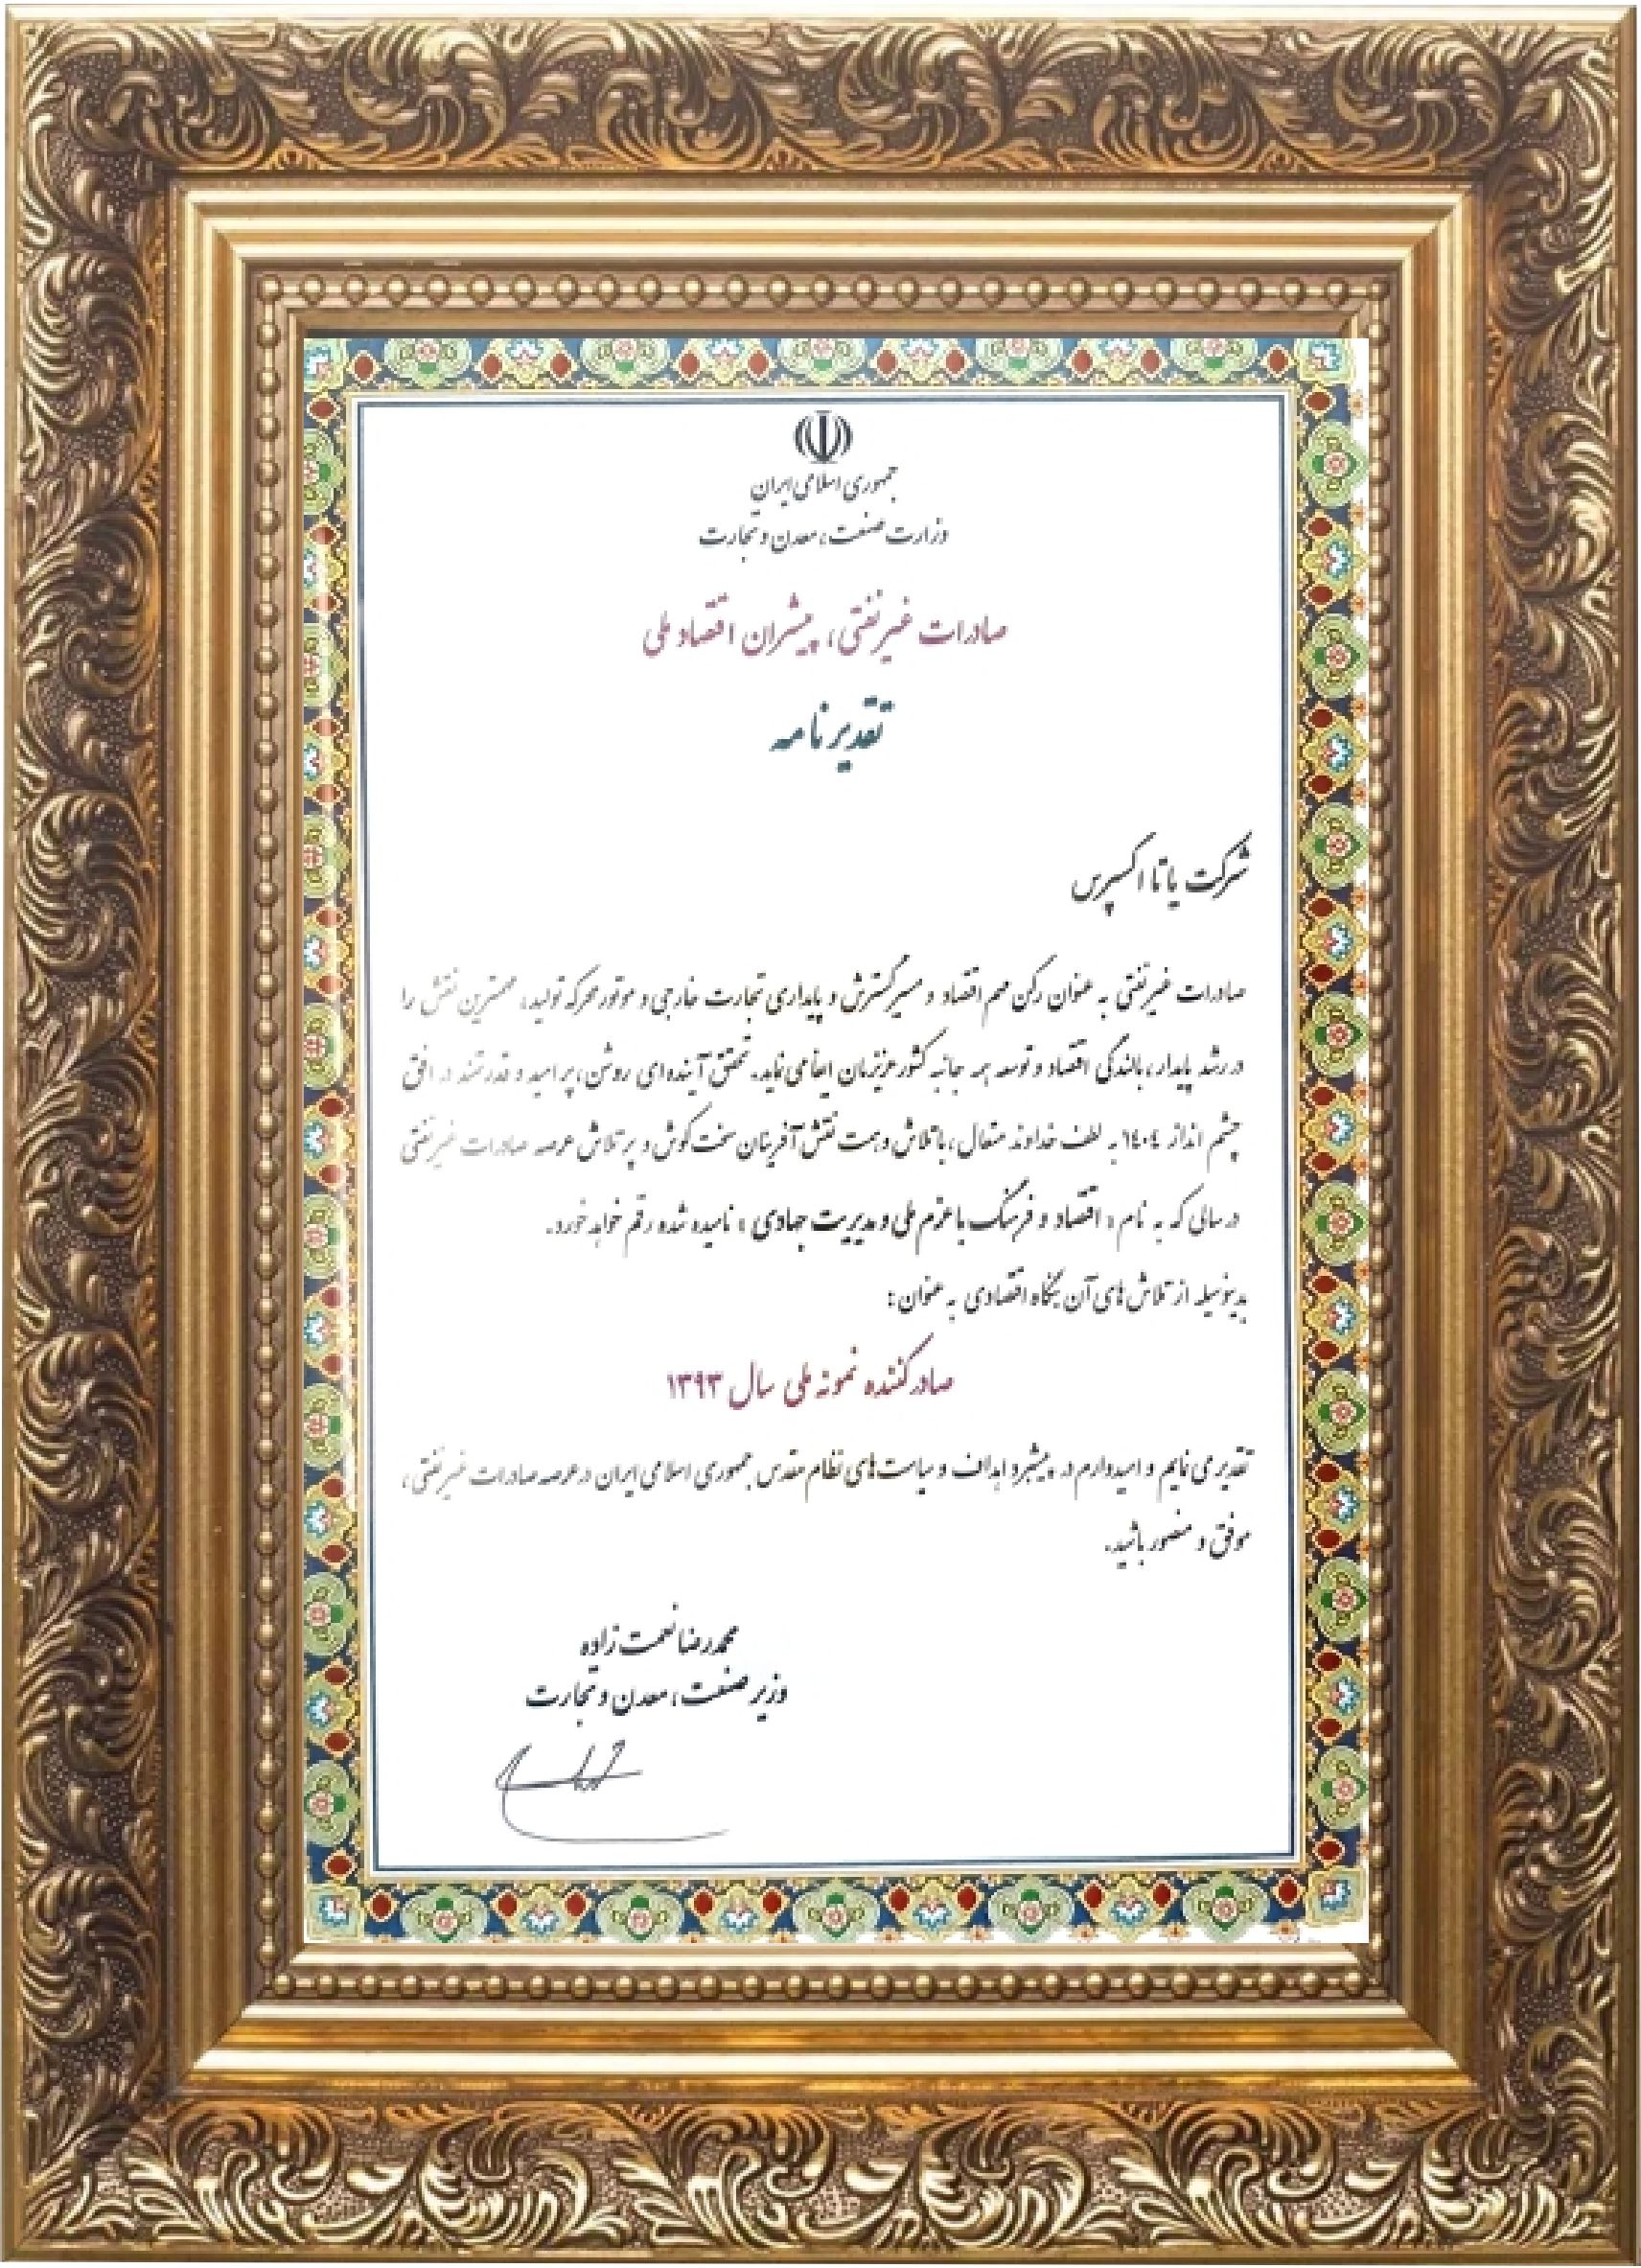 جمهوری اسلامی ایران
وزارت صنعت، معدن و تجارت
صادرات غیرنفتی، پیشران اقتصاد ملی
تقدیرنامه
شرکت یاتا اکسپرس
صادرات غیرنفتی به عنوان رکن مهم اقتصاد و مسیر گسترش و پایداری تجارت خارجی و موتور محرکه تولید، مهمترین نقش را
در رشد پایدار، بالندگی اقتصاد و توسعه همه جانبه کشور عزیزمان ایفا می نماید. تحقق آینده ای روشن، پر امید و قدرتمند در افق
چشم انداز ۱۴۰۴ به لطف خداوند متعال، با تلاش و همت نقش آفرینان سخت کوش و پر تلاش عرصه صادرات غیرنفتی
در سالی که به نام «اقتصاد و فرهنگ با عزم ملی و مدیریت جهادی» نامیده شده رقم خواهد خورد.
بدینوسیله از تلاش های آن بنگاه اقتصادی به عنوان:
صادرکننده نمونه ملی سال ۱۳۹۳
تقدیر می نمایم و امیدوارم در پیشبرد اهداف و سیاست های نظام مقدس جمهوری اسلامی ایران در عرصه صادرات غیرنفتی،
موفق و منصور باشید.
محمدرضا نعمت زاده
وزیر صنعت، معدن و تجارت